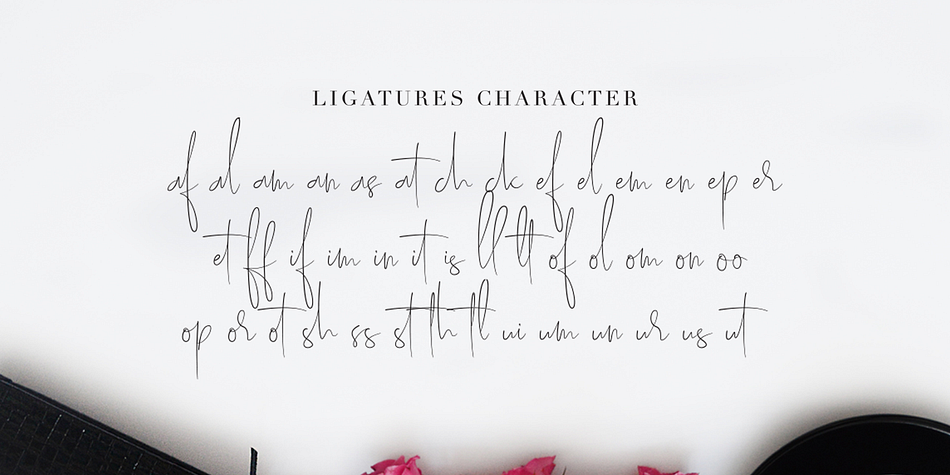 LIGATURES CHARACTER
af al am an as at ch ck ef el em en ep er
et ff if im in it is ll lt of ol om on oo
op or ot sh ss st th tl ui um un ur us ut